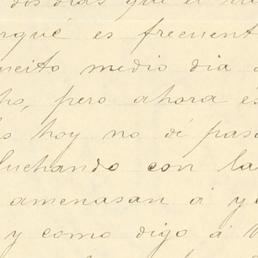 dos días que el
rqué es frecuent
ueito medio dia
ho, pero ahora és
s hoy no dé pas
luchando con la
amenasan á y
y como digo á